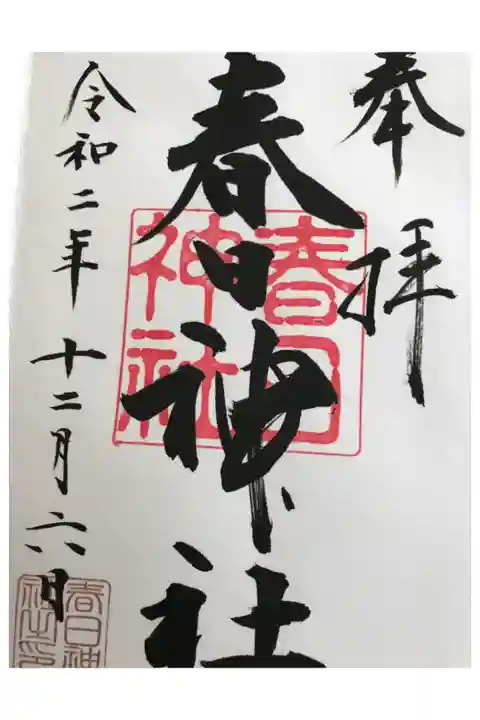 奉拝
春日神社
春日
神社
令和二年十二月六日
春日神
社之印